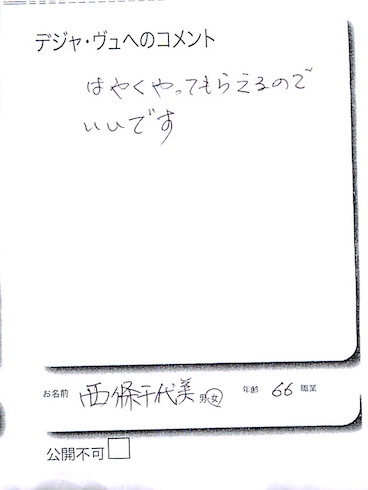 デジャ・ヴュへのコメント
はやくやってもらえるので
いいです
お名前 西條千代美 男・女 年齢 66 職業
公開不可